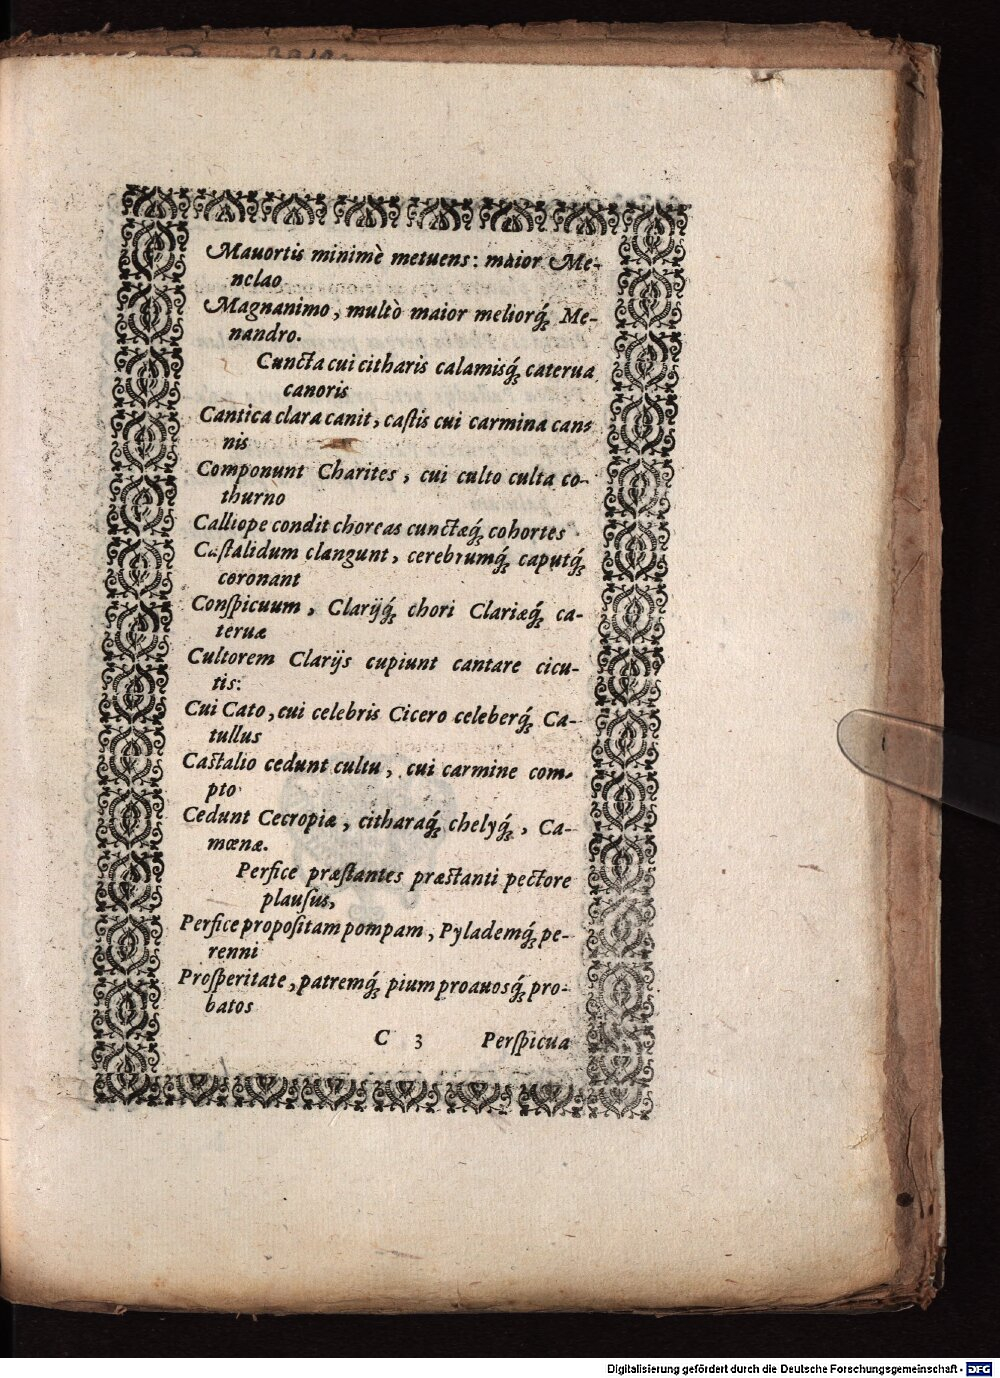 Mauortis minimè metuens: maior Me-
nelao
Magnanimo, multò maior meliorq́; Me-
nandro.
Cuncta cui citharis calamisq́; caterua
canoris
Cantica clara canit, caſtis cui carmina can-
nis
Componunt Charites, cui culto culta co-
thurno
Calliope condit choreas cunctæq́; cohortes
Caſtalidum clangunt, cerebrumq́; caputq́;
coronant
Conſpicuum, Clarijq́; chori Clariæq́; ca-
teruæ
Cultorem Clarijs cupiunt cantare cicu-
tis:
Cui Cato, cui celebris Cicero celeberq́; Ca-
tullus
Caſtalio cedunt cultu, cui carmine com-
pto
Cedunt Cecropiæ, citharaq́; chelyq́;, Ca-
mœnæ.
Perfice præſtantes præſtanti pectore
plauſus,
Perfice propoſitam pompam, Pylademq́; pe-
renni
Proſperitate, patremq́; pium proauosq́; pro-
batos
C 3 Perſpicua
Digitalisierung gefördert durch die Deutsche Forschungsgemeinschaft - DFG